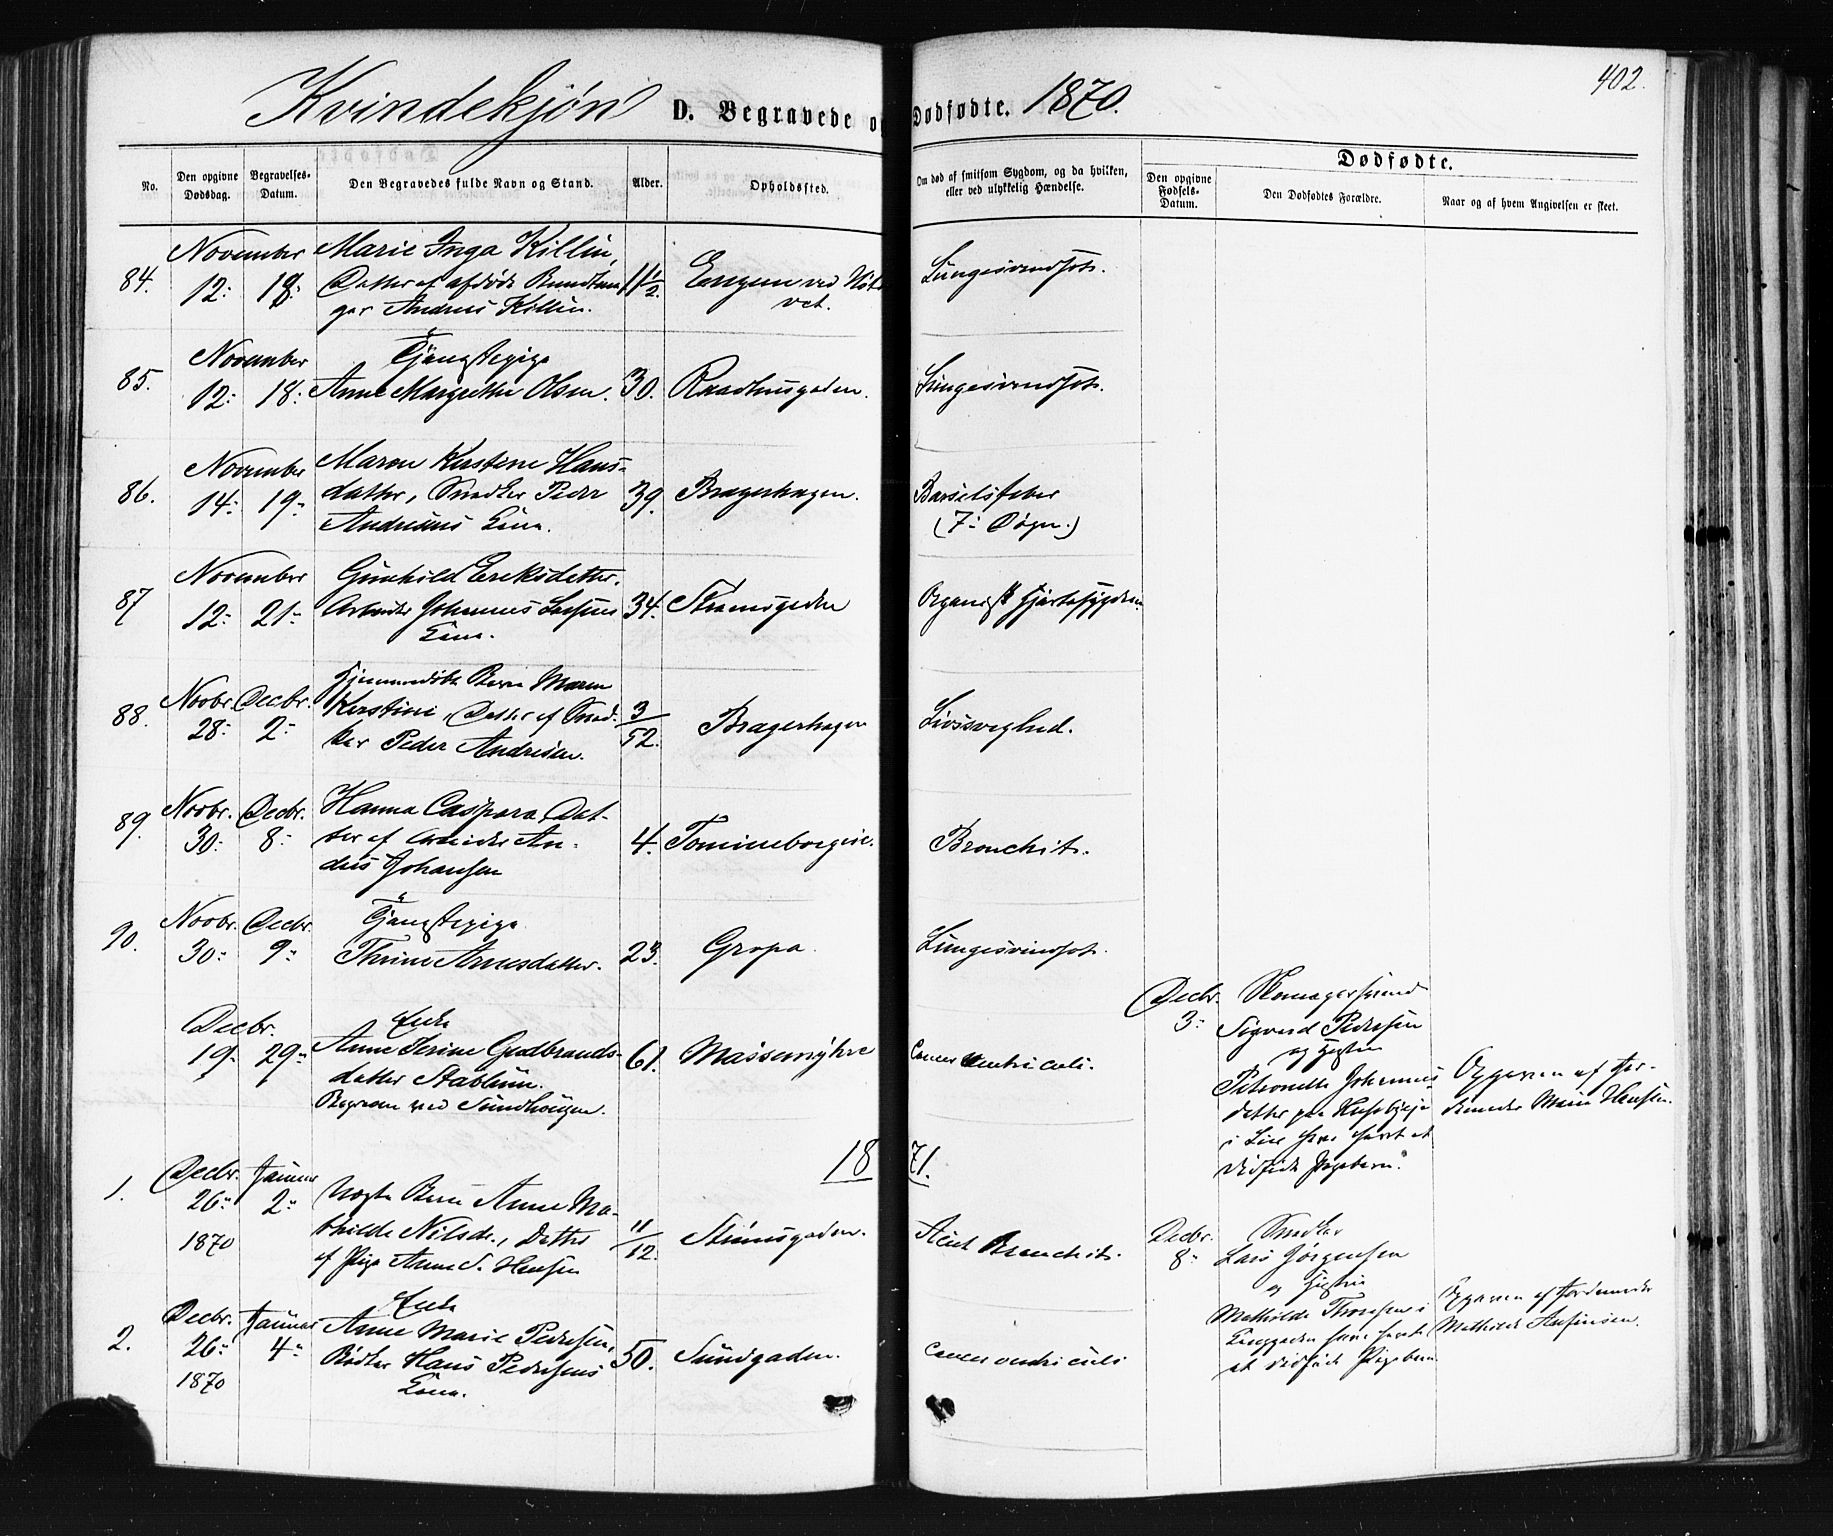 402.
Kvindekjøn D. Begravede og Dødfødte. 1870.
No.
Den opgivne Dødsdag.
Begravelses-Datum.
Den Begravedes fulde Navn og Stand.
Alder.
Opholdssted.
Om død af smitsom Sygdom, og da hvilken, eller ved ulykkelig Hændelse.
Dødfødte.
Den opgivne Fødsels-Datum.
Den Dødfødtes Forældre.
Naar og af hvem Angivelsen er skeet.
84.
November
12. 18.
Marie Inga Killin,
Datter af afdøde
Andreas Killin.
11 1/2
Engen ved
Lungesvindsot.
85.
November
12. 18.
Tjenestepige
Anne Margrethe Olsen.
30.
Raadhusgaden.
Lungesvindsot.
86.
November
14. 19.
Maren Kirstine Hans-
datter, Snedker Peder
Andreasens Kone.
39.
Bragerhagen.
Barselsfeber
(7 Døgn.)
87
November
12. 21.
Gunhild Eriksdatter.
Arbeider Johannes
Kone.
34.
Strømsgaden
Organisk Hjertesygdom
88.
Novbr. Decbr.
28. 2.
Hjemmedøbt Barn Maren
Kirstine, Datter af Sned-
ker Peder Andreasen.
3/52.
Bragerhagen
Livssvaghed.
89.
Novbr. Decbr.
30. 8.
Hanna Caspara, Dat-
ter af Arbeider An-
dreas Johansen
4.
Tomineborgveie.
Bronchit.
90.
Novbr. Decbr.
30. 9.
Tjenestepige
Thrine Arnesdatter.
23.
Gropa.
Lungesvindsot.
Decbr.
19. 29.
Enke
Anne Serine Gudbrands-
datter
Begraven ved Sundhaugen.
61.
Massemyhre
Cancer ventriculi.
Decbr.
3.
Skomagersvend
Sigvard Pedersen
og Hustru
Petronelle Johannes-
datter paa
i Lier have havt et
dødfødt Pigebarn.
Opgaven af Jor-
demoder Marie Hansen.
1871.
1.
Decbr. Januar
26. 2.
1870
Uægte Barn Anne Ma-
thilde Nilsdr., Datter
af Pige Anne S. Hansen
11/12.
Strømsgaden.
Acut Bronchit.
Decbr.
8.
Snedker
Lars Jørgensen
og Hustru
Mathilde Thoresen i
Enggaden have havt
et dødfødt Pigebarn.
Opgaven af Jordemoder
Mathilde
2.
Decbr. Januar
26. 4.
1870
Enke
Anne Marie Pedersen,
Bødker Hans Pedersens
Kone.
50.
Sundgaden.
Cancer ventriculi